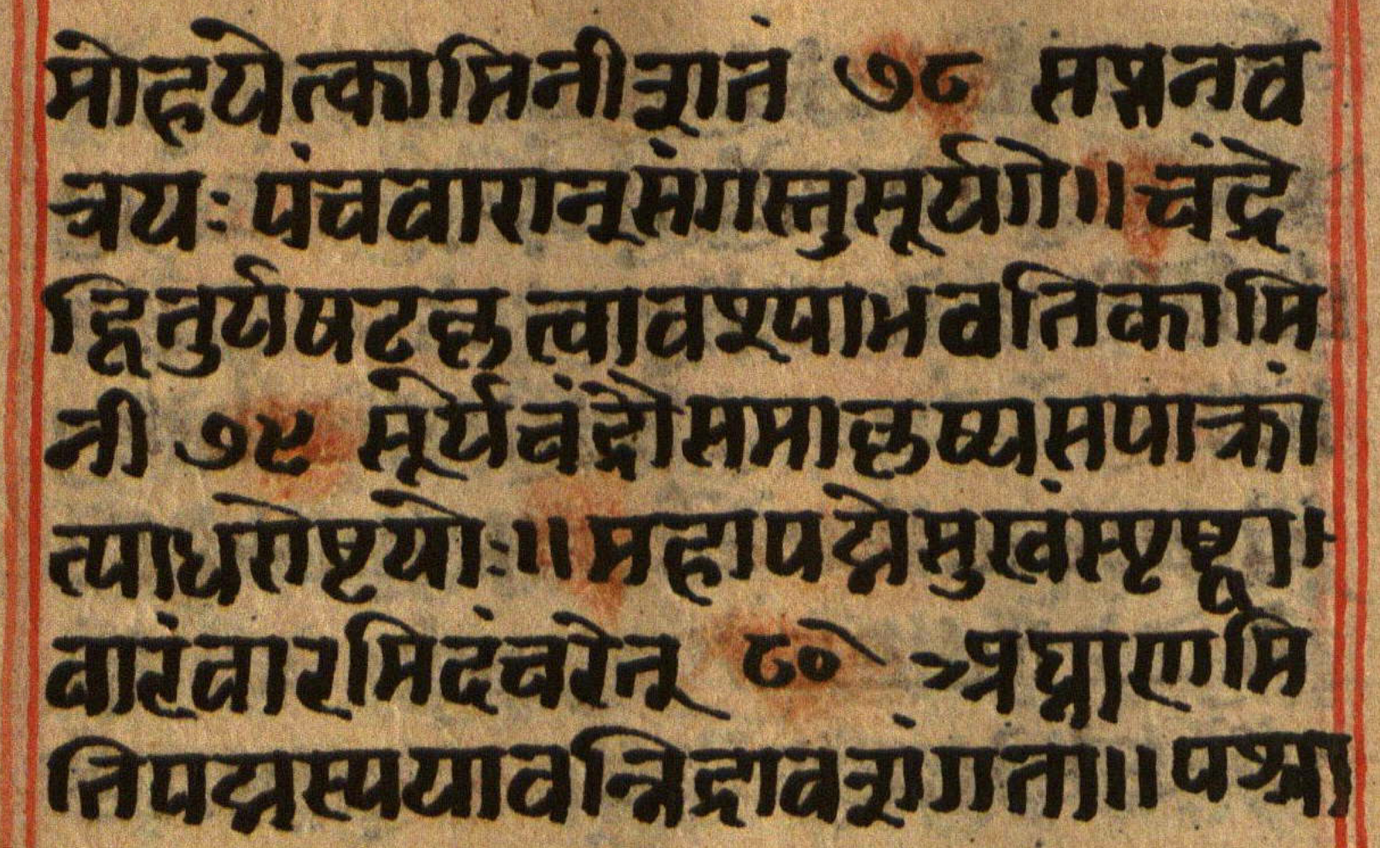 मोहयेत्कामिनीशतं ७८ सप्तनव
त्रयः पंचवारान्संगस्तुसूर्यगे॥ चंद्रे
द्वितुर्यषटकृत्वावश्याभवतिकामि
नी ७९ सूर्यचंद्रोसमाकृष्यसपाक्रां
त्याधरोष्टयोः॥ महापद्मेमुखंस्पृष्ट्वा।
वारंवारमिदंचरेत् ८० आघ्राणमि
तिपद्मस्पयावन्निद्रावशंगता॥ पश्चा